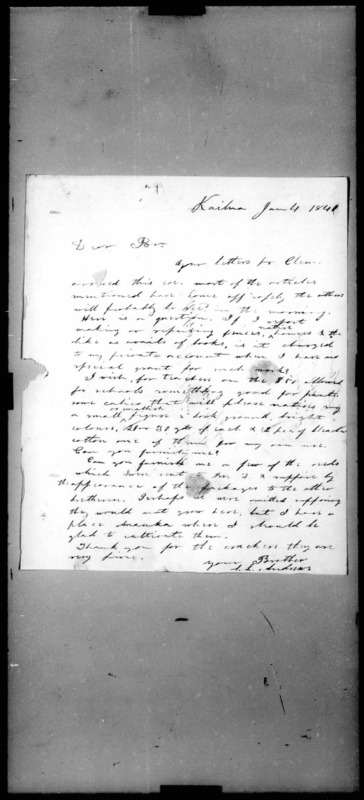 Kailua Jan 4 1841
Dear Bro
Your letters per Clem.
arrived this eve. most of the articles
mentioned have come off safely the others
will probably be in the morning.
Here is a question. If I
making or repairing fences, native houses & the
like as avails of books, is it charged
to my private account when I have no
special grant for such work.
I wish, for teachers on the $ allowed
for schools something good for pants
some calico that will please natives say
a small figure or
colours, say 30 yds of each & 12 ps of
cotton one of them for my own use.
Can you furnish me?
Can you furnish me a few of the seeds
which were sent to Dr. I suppose by
the appearance of the packages to the other
brethren. Perhaps we were omitted supposing
they would not grow here, but I have a
place mauka where I should be
glad to cultivate them.
Thank you for the crackers they are
very fine.
Your Brother
Andrews